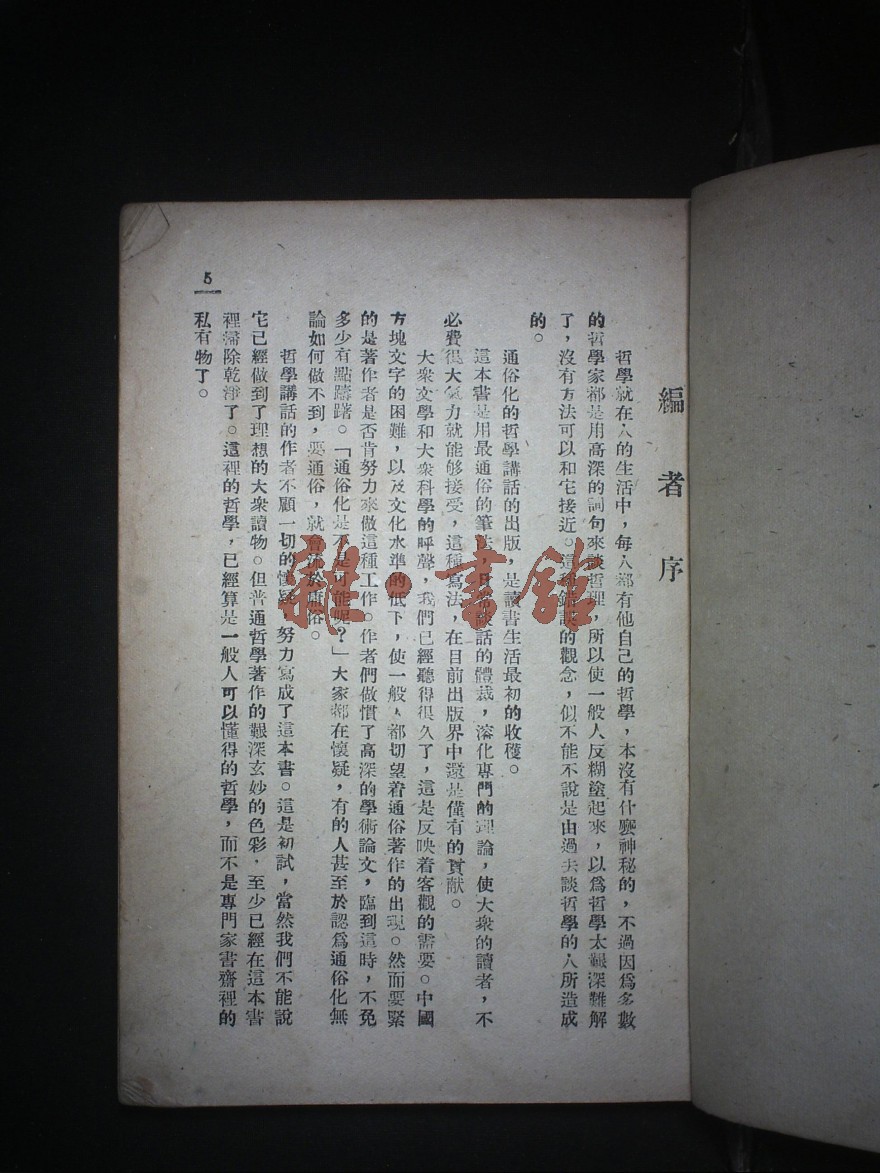 編者序
哲學就在人的生活中，每人都有他自己的哲學，本沒有什麼神秘的，不過因爲多數
的哲學家都是用高深的詞句來談哲理，所以使一般人反糊塗起來，以爲哲學太艱深難解
了，沒有方法可以和它接近。這種錯誤的觀念，似不能不說是由過去談哲學的人所造成
的。
通俗化的哲學講話的出版，是讀書生活最初的收穫。
這本書是用最通俗的筆法，日常談話的體裁，溶化專門的理論，使大衆的讀者，不
必費很大氣力就能够接受，這種寫法，在目前出版界中還是僅有的貢献。
大衆文學和大衆科學的呼聲，我們已經聽得很久了，這是反映着客觀的需要。中國
方塊文字的困難，以及文化水準的低下，使一般人都切望着通俗著作的出現。然而要緊
的是著作者是否肯努力來做這種工作。作者們做慣了高深的學術論文，臨到這時，不免
多少有點躊躇。「通俗化是不是可能呢？」大家都在懷疑，有的人甚至於認爲通俗化無
論如何做不到，要通俗，就會流於庸俗。
哲學講話的作者不顧一切的懷疑，努力寫成了這本書。這是初試，當然我們不能說
它已經做到了理想的大衆讀物。但普通哲學著作的艱深玄妙的色彩，至少已經在這本書
裡掃除乾淨了。這裡的哲學，已經算是一般人可以懂得的哲學，而不是專門家書齋裡的
私有物了。
5
雜·書館